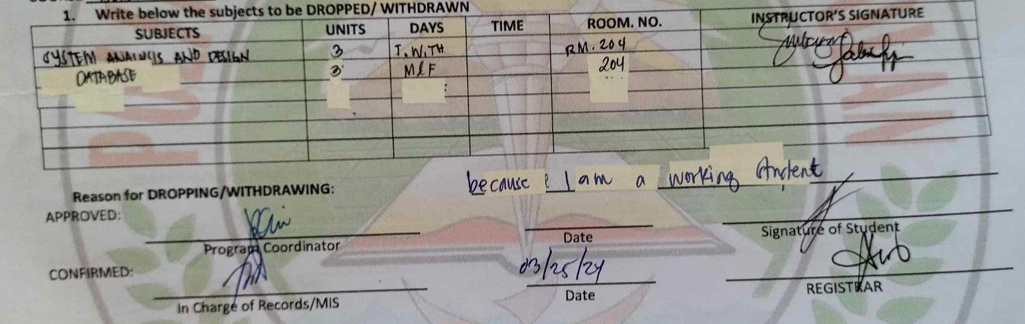 1. Write below the subjects to be DROPPED/ WITHDRAWN
SUBJECTS UNITS DAYS TIME ROOM. NO. INSTRUCTOR'S SIGNATURE
SYSTEM ANALYSIS AND DESIGN 3 T.W.TH RM. 204
DATABASE 3 M&F 204
Reason for DROPPING/WITHDRAWING: because I am a working student
APPROVED:
Program Coordinator Date Signature of Student
CONFIRMED: 03/25/24
In Charge of Records/MIS Date REGISTRAR